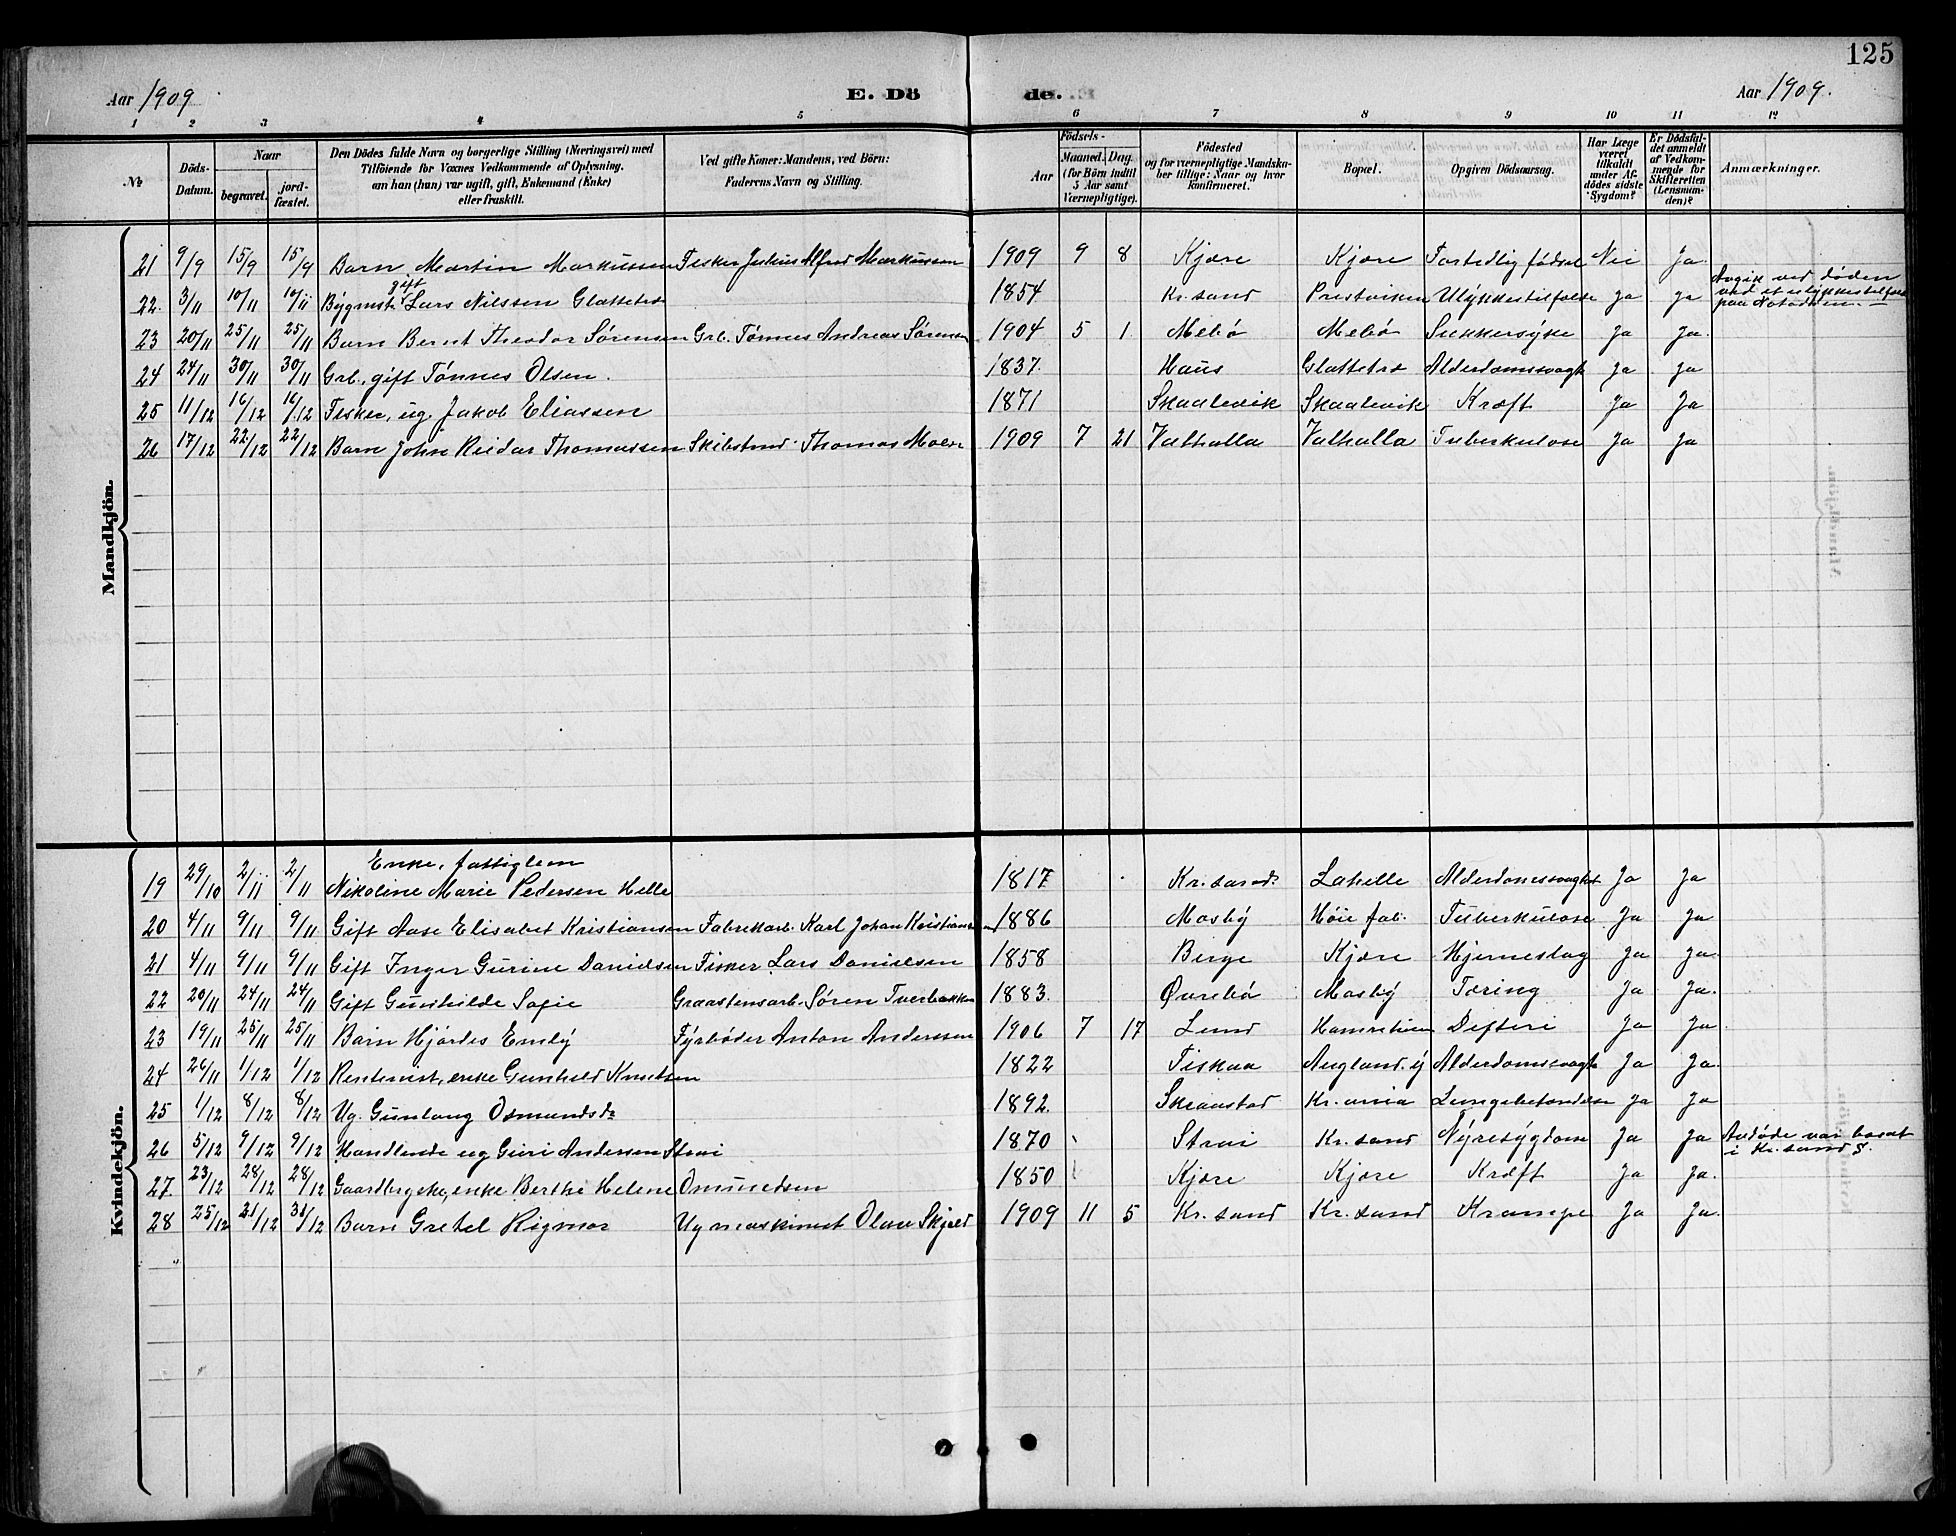 125
Aar 1909
E. Dö de.
Aar 1909.
1 2 3 4 5 6 7 8 9 10 11 12
№
Döds-Datum.
Naar
begravet.
jord-fæstet.
Den Dödes fulde Navn og borgerlige Stilling (Næringsvei) med
Tilföiende for Voxnes Vedkommende af Oplysning.
om han (hun) var ugift, gift, Enkemand (Enke)
eller fraskilt.
Ved gifte Koner: Mandens, ved Börn:
Faderens Navn og Stilling.
Födsels-
Aar
Maaned. Dag.
(for Börn indtil
5 Aar samt
Værnepligtige).
Födested
og for værnepligtige Mandska-
ber tillige: Naar og hvor
konfirmeret.
Bopæl.
Opgiven Dödsaarsag.
Har Læge
været
tilkaldt
under Af-
dödes sidste
Sygdom?
Er Dödsfal-
det anmeldt
af Vedkom-
mende for
Skifteretten
(Lensman-
den)?
Anmærkninger.
Mandkjön.
21 9/9 15/9 15/9 Barn Martin Markussen Fisker Julius Alfred Markussen 1909 9 8 Kjære Kjære Fortidlig fødsel Nei Ja
gift
22. 3/11 10/11 10/11 Bygmst. Lars Nilssen Glattetre 1854 Kr. sand Prestviken Ulykkestilfælde ja ja Avgik ved døden
ved et ulykkestilfælde
paa Notodden. —
23 20/11 25/11 25/11 Barn Bernt Theodor Sørensen Grb. Tønnes Andreas Sørensen 1904 5 1 Mebø Mebø Sukkersyke Ja Ja.
24 24/11 30/11 30/11 Grb. gift Tønnes Olsen. 1837. Haus Glattetre Alderdomssvagh Ja Ja
25 11/12 16/12 16/12 Fisker, ug. Jakob Eliassen 1871 Skaalevik Skaalevik Kræft Ja Ja
26 17/12 22/12 22/12 Barn John Reidar Thomassen Skibstmd. Thomas Moen 1909 7 21 Valhalla Valhalla Tuberkulose Ja Ja
Kvindekjön.
Enke, fattiglem
19 29/10 2/11 2/11 Nikoline Marie Pedersen Helle 1817 Kr. sand. Lahelle Alderdomssvaghet Ja Ja
20 4/11 9/11 9/11 Gift Aase Elisabet Kristiansen Fabrikarb. Karl Johan Kristiansen 1886 Mosby Høie fab. Tuberkulose Ja Ja
21 4/11 9/11 9/11 Gift Inger Gurine Danielsen Fisker Lars Danielsen 1858 Berge Kjære Hjerneslag Ja Ja.
22 20/11 24/11 24/11 Gift Gunhilde Sofie Graastensarb. Søren Tverbakken 1883. Øvrebø Mosby Tæring Ja Ja.
23 19/11 25/11 25/11 Barn Hjørdis Emly Fyrbøder Anton Anderssen 1906 7 17 Lund Difteri Ja Ja
24 26/11 1/12 1/12 Rentenist, enke Gunhild Knutsen 1822 Fiskaa Augland. y Alderdomssvagh Ja Ja.
25 1/12 8/12 8/12 Ug. Gunlaug Osmundsd. 1892. Kr. ania Lungebetændelse Ja Ja
26 5/12 9/12 9/12 Handlende ug Guri Andersen Strai 1870 Strai Kr. sand Nyresygdom Ja Ja Avdøde var bosat
i Kr. sand S.
27. 23/12 28/12 28/12 Gaardbrgske, enke Berthe Helene Omundsen 1850 Kjære Kjære Kræft Ja Ja.
28 25/12 31/12 31/12 Barn Gretel Rigmor Ug maskinist Olav Skjeld 1909 11 5 Kr. sand Kr. sand Krampe Ja Ja.